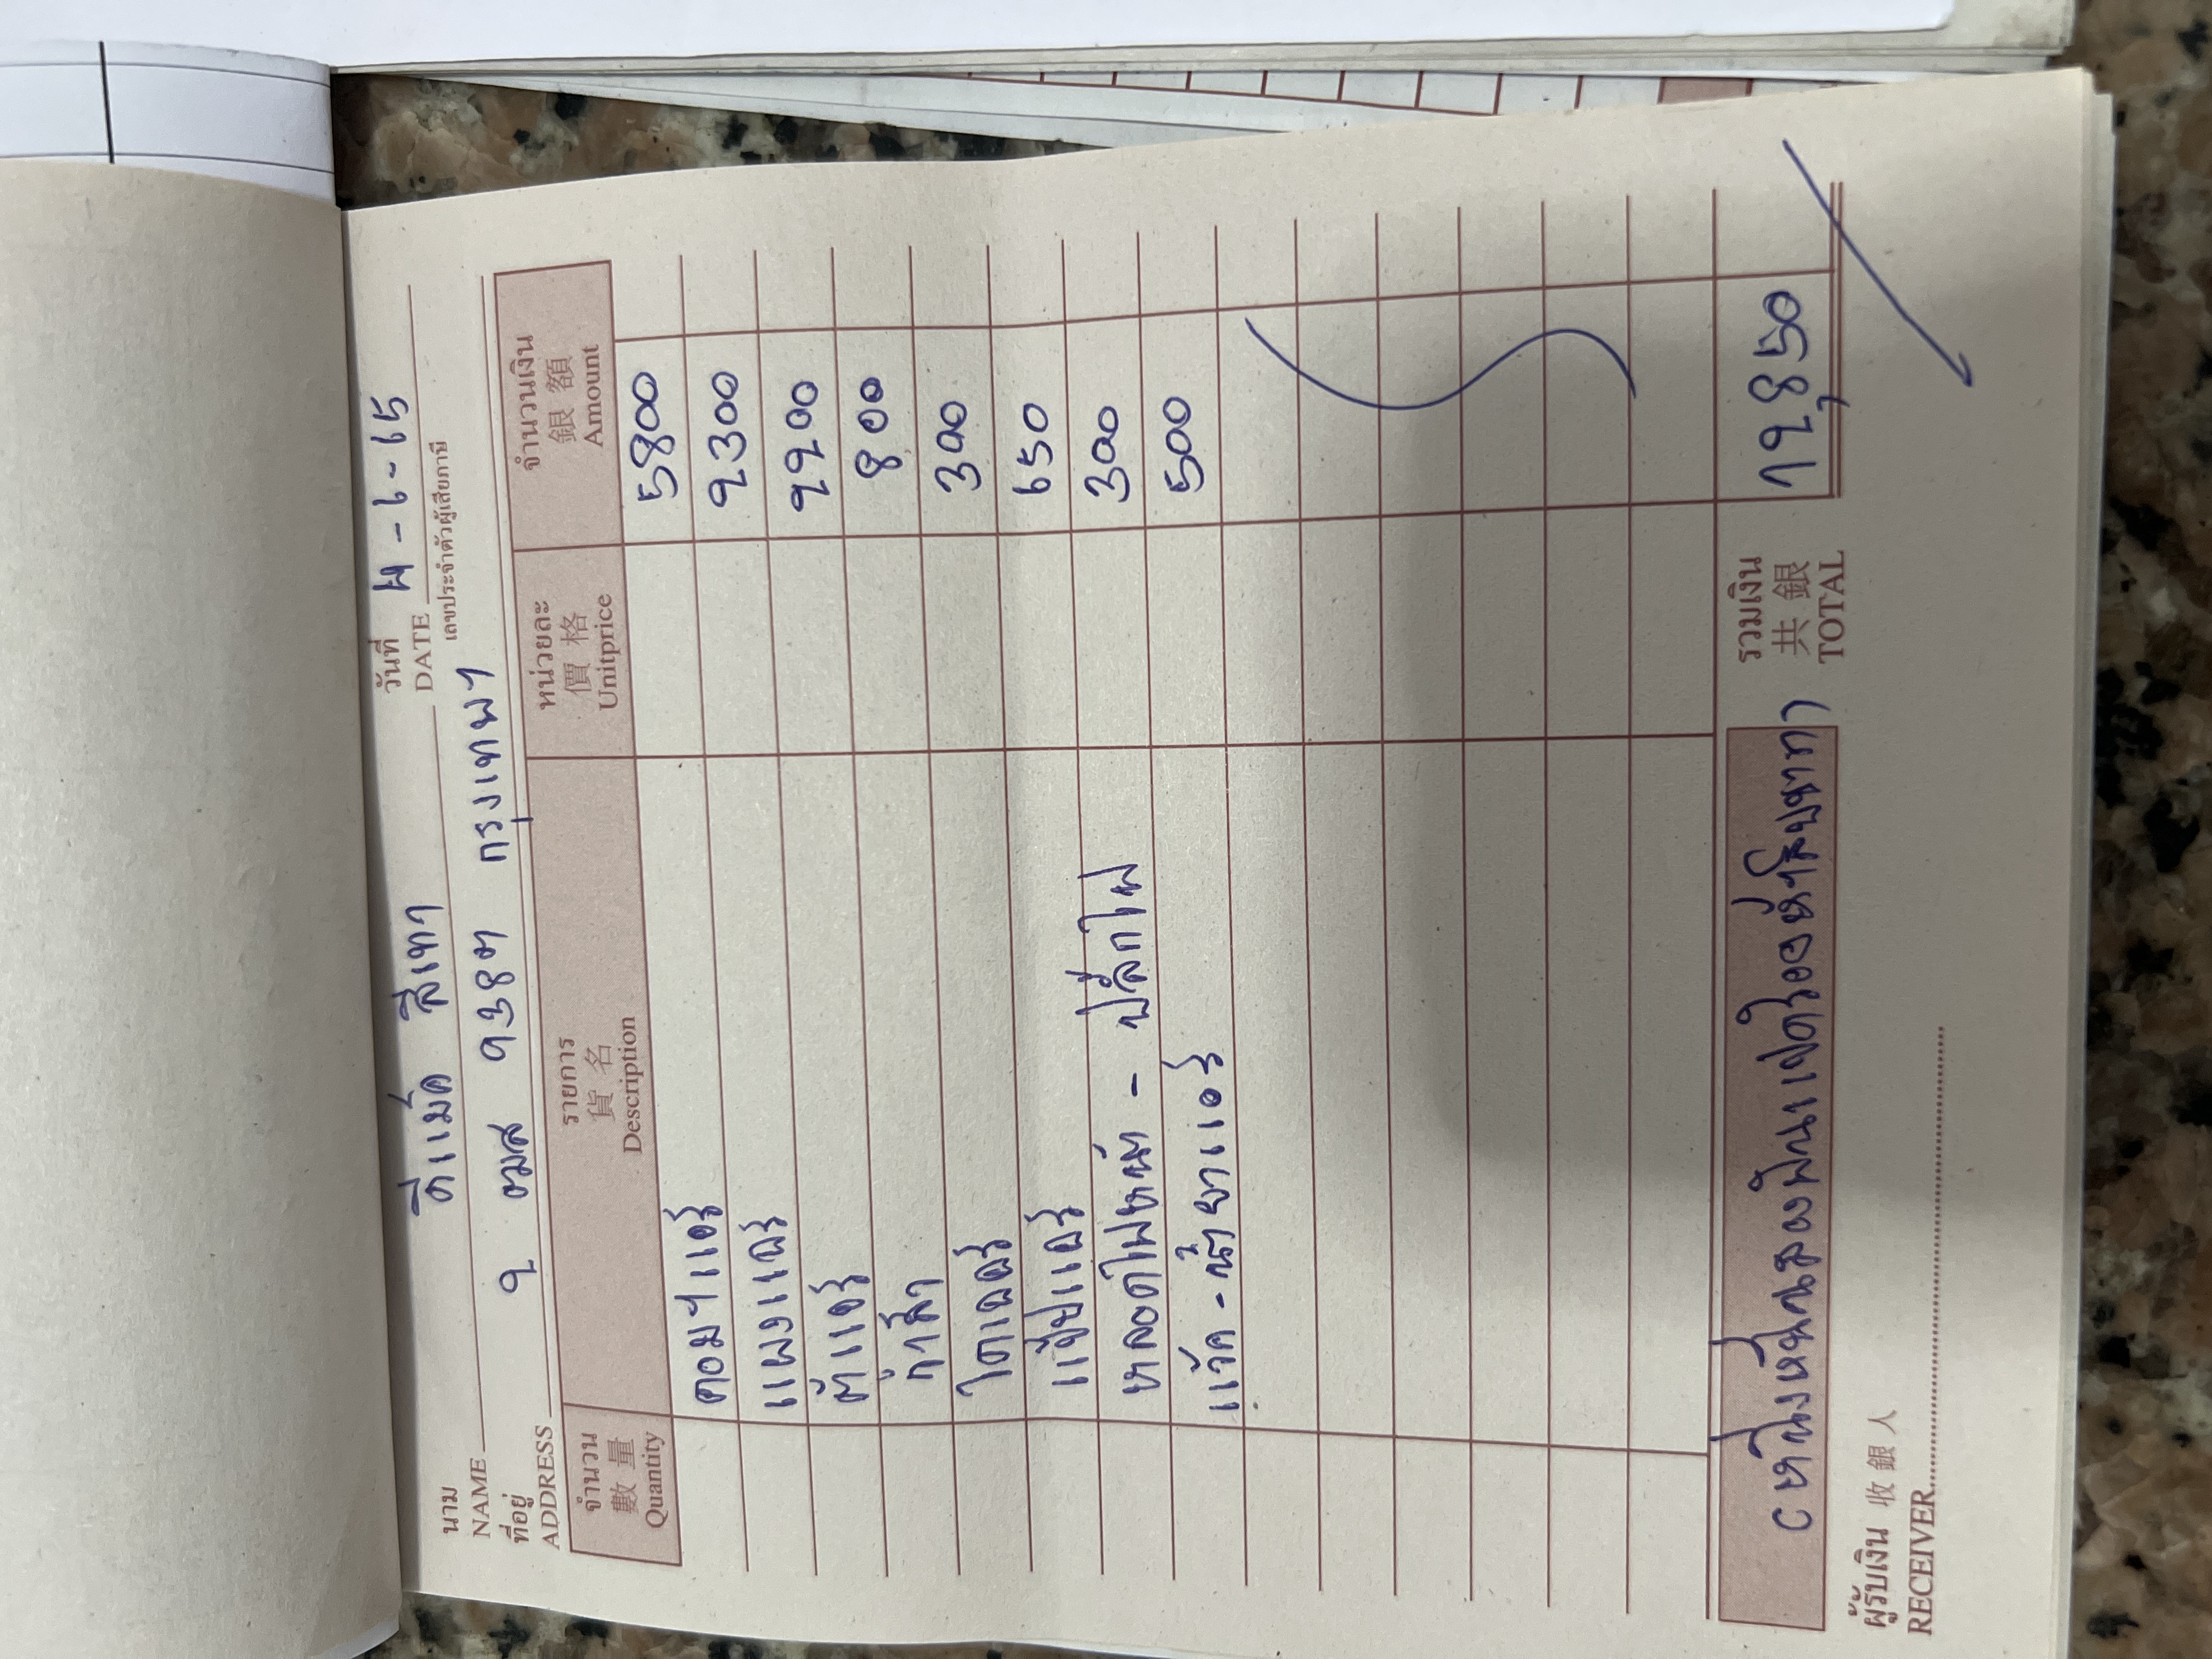 นาม
NAME ดีแม็ค สีเทา
วันที่
DATE 4-6-65
เลขประจำตัวผู้เสียภาษี
ที่อยู่
ADDRESS 2 ฒส 9387 กรุงเทพฯ
จำนวน รายการ หน่วยละ จำนวนเงิน
數量 貨名 價格 銀額
Quantity Description Unitprice Amount
คอมฯแอร์ 5800
แผงแอร์ 2300
ตู้แอร์ 2200
800
ไดเออร์ 300
แป๊ปแอร์ 650
หลอดไฟหน้า - ปลั๊กไฟ 300
แว๊ค - น้ำยาแอร์ 500
(หนึ่งหมื่นสองพันแปดร้อยห้าสิบบาท)
รวมเงิน
共銀
TOTAL 12,850
ผู้รับเงิน 收銀人
RECEIVER